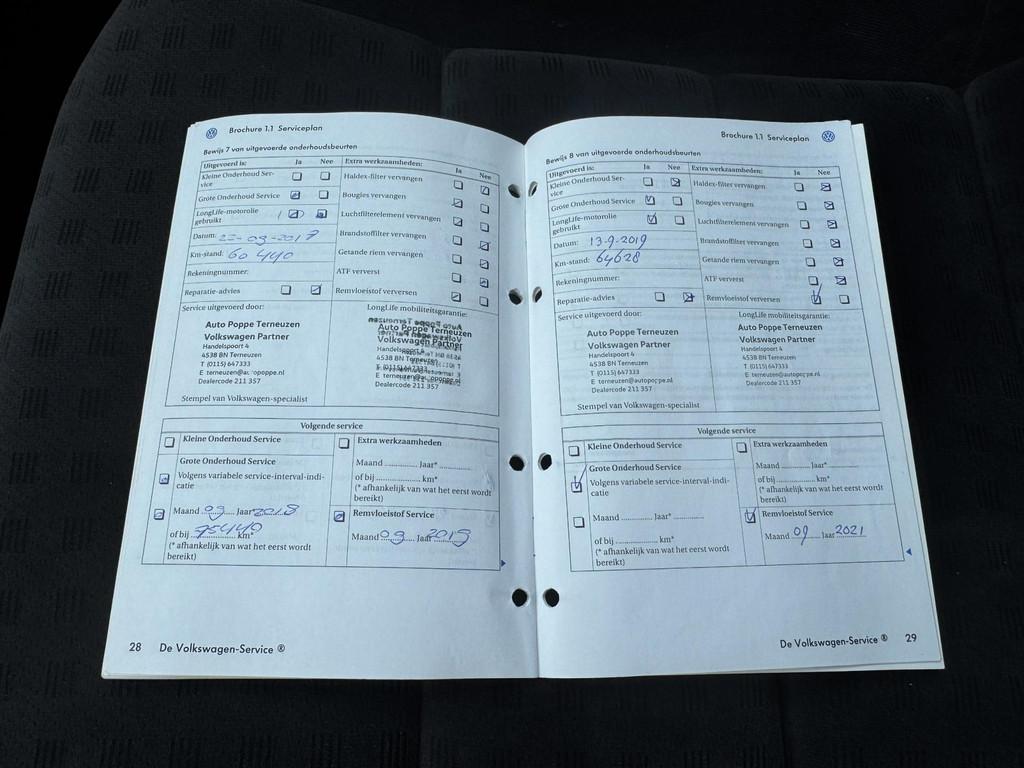 Brochure 1.1 Serviceplan
Bewijs 7 van uitgevoerde onderhoudsbeurten
Uitgevoerd is: Ja Nee Extra werkzaamheden: Ja Nee
Kleine Onderhoud Ser-
vice
Haldex-filter vervangen
Grote Onderhoud Service
Bougies vervangen
LongLife-motorolie
gebruikt
Luchtfilterelement vervangen
Datum: 09-201
Brandstoffilter vervangen
Km-stand: 60 440
Getande riem vervangen
Rekeningnummer:
ATF ververst
Reparatie-advies
Remvloeistof verversen
Service uitgevoerd door:
LongLife mobiliteitsgarantie:
Auto Poppe Terneuzen
Volkswagen Partner
Handelspoort 4
4538 BN Terneuzen
T (0115) 647333
E terneuzen@au opoppe.nl
Dealercode 211 357
Auto Poppe Terneuzen
Volkswagen Partner
Handelspoort 4
4538 BN Terneuzen
T (0115) 647333
E terneuzen@autopoppe.nl
Dealercode 211 357
Stempel van Volkswagen-specialist
Volgende service
Kleine Onderhoud Service
Extra werkzaamheden
Grote Onderhoud Service
Volgens variabele service-interval-indi-
catie
Maand .............. Jaar* ..............
of bij .............. km*
(* afhankelijk van wat het eerst wordt
bereikt)
Maand 09 Jaar 2018
of bij 75440 km*
(* afhankelijk van wat het eerst wordt
bereikt)
Remvloeistof Service
Maand 09 Jaar 2019
28 De Volkswagen-Service ®
Brochure 1.1 Serviceplan
Bewijs 8 van uitgevoerde onderhoudsbeurten
Uitgevoerd is: Ja Nee Extra werkzaamheden: Ja Nee
Kleine Onderhoud Ser-
vice
Haldex-filter vervangen
Grote Onderhoud Service
Bougies vervangen
LongLife-motorolie
gebruikt
Luchtfilterelement vervangen
Datum: 13-9-2019
Brandstoffilter vervangen
Km-stand: 64628
Getande riem vervangen
Rekeningnummer:
ATF ververst
Reparatie-advies
Remvloeistof verversen
Service uitgevoerd door:
LongLife mobiliteitsgarantie:
Auto Poppe Terneuzen
Volkswagen Partner
Handelspoort 4
4538 BN Terneuzen
T (0115) 647333
E terneuzen@autopoppe.nl
Dealercode 211 357
Auto Poppe Terneuzen
Volkswagen Partner
Handelspoort 4
4538 BN Terneuzen
T (0115) 647333
E terneuzen@autopoppe.nl
Dealercode 211 357
Stempel van Volkswagen-specialist
Volgende service
Kleine Onderhoud Service
Extra werkzaamheden
Grote Onderhoud Service
Volgens variabele service-interval-indi-
catie
Maand .............. Jaar* ..............
of bij .............. km*
(* afhankelijk van wat het eerst wordt
bereikt)
Maand .............. Jaar* ..............
of bij .............. km*
(* afhankelijk van wat het eerst wordt
bereikt)
Remvloeistof Service
Maand 09 Jaar 2021
De Volkswagen-Service ® 29